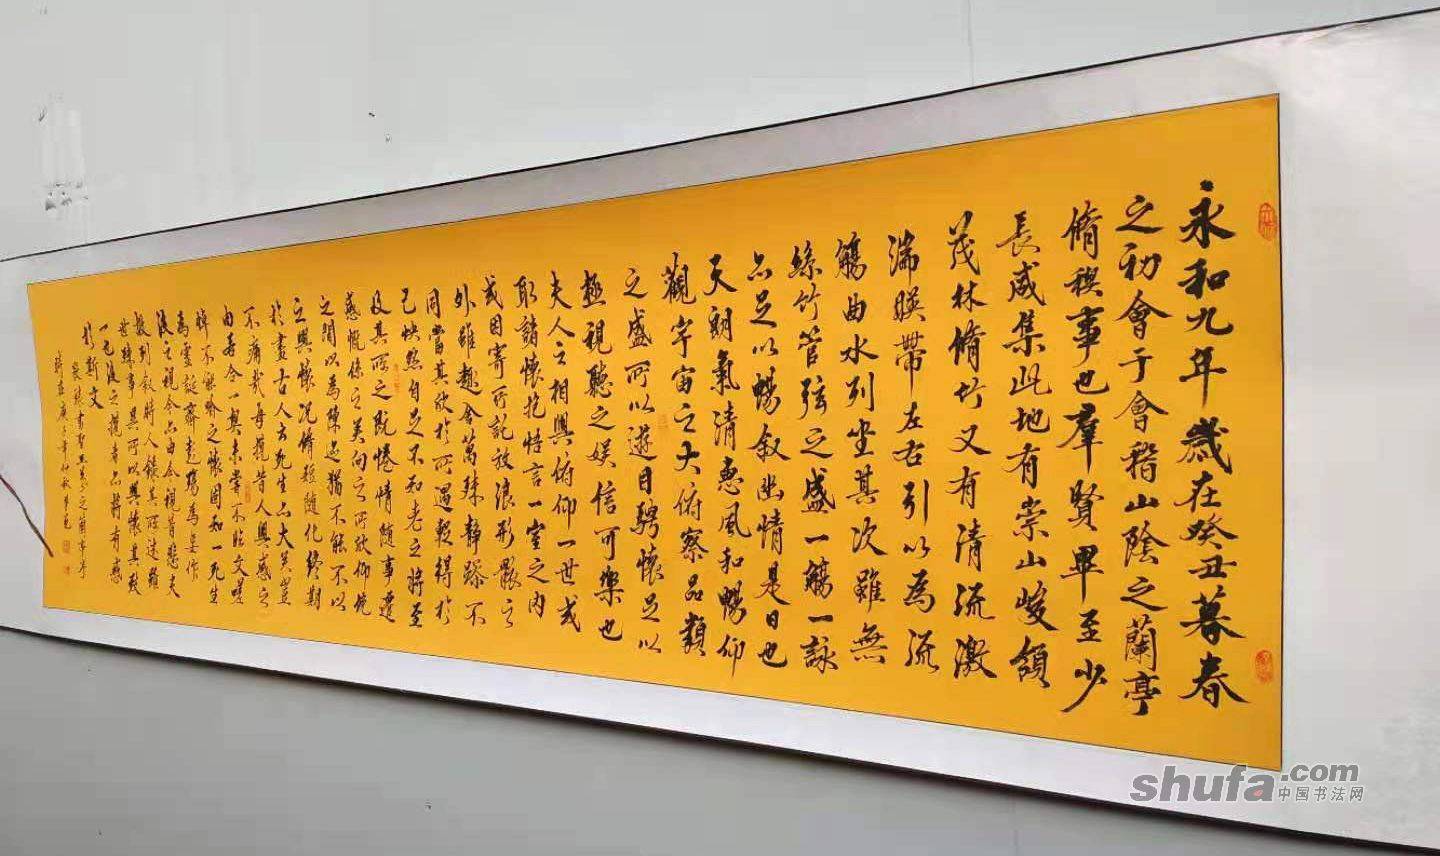 永和九年歲在癸丑暮春
之初會于會稽山陰之蘭亭
脩稧事也羣賢畢至少
長咸集此地有崇山峻領
茂林脩竹又有清流激
湍暎帶左右引以為流
觴曲水列坐其次雖無
絲竹管弦之盛一觴一詠
亦足以暢叙幽情是日也
天朗氣清惠風和暢仰
觀宇宙之大俯察品類
之盛所以遊目騁懷足以
極視聽之娛信可樂也
夫人之相與俯仰一世或
取諸懷抱悟言一室之內
或因寄所託放浪形骸之
外雖趣舍萬殊靜躁不
同當其欣於所遇暫得於
己怏然自足不知老之將至
及其所之既惓情隨事遷
感慨係之矣向之所欣仰俛
之間以為陳迹猶不能不以
之興懷況脩短隨化終期
於盡古人云死生亦大矣豈
不痛哉每攬昔人興感之
由若合一契未嘗不臨文嗟
悼不能喻之懷固知一死生
為虛誕齊彭殤為妄作
後之視今亦由今視昔悲夫
故列叙時人錄其所述雖
世殊事異所以興懷其致
一也後之攬者亦將有感
於斯文
書聖之蘭亭序
庚子年仲秋
shufa.com
中国书法网